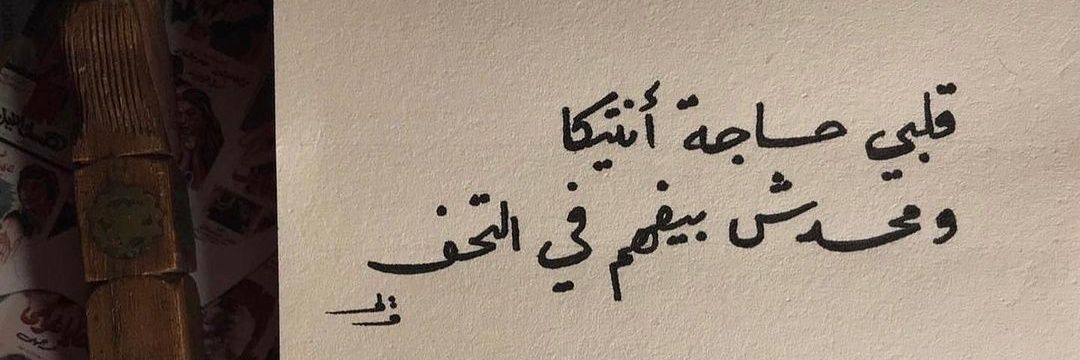 قلبي حاجة أنتيكا
ومحدش بيفهم في التحف